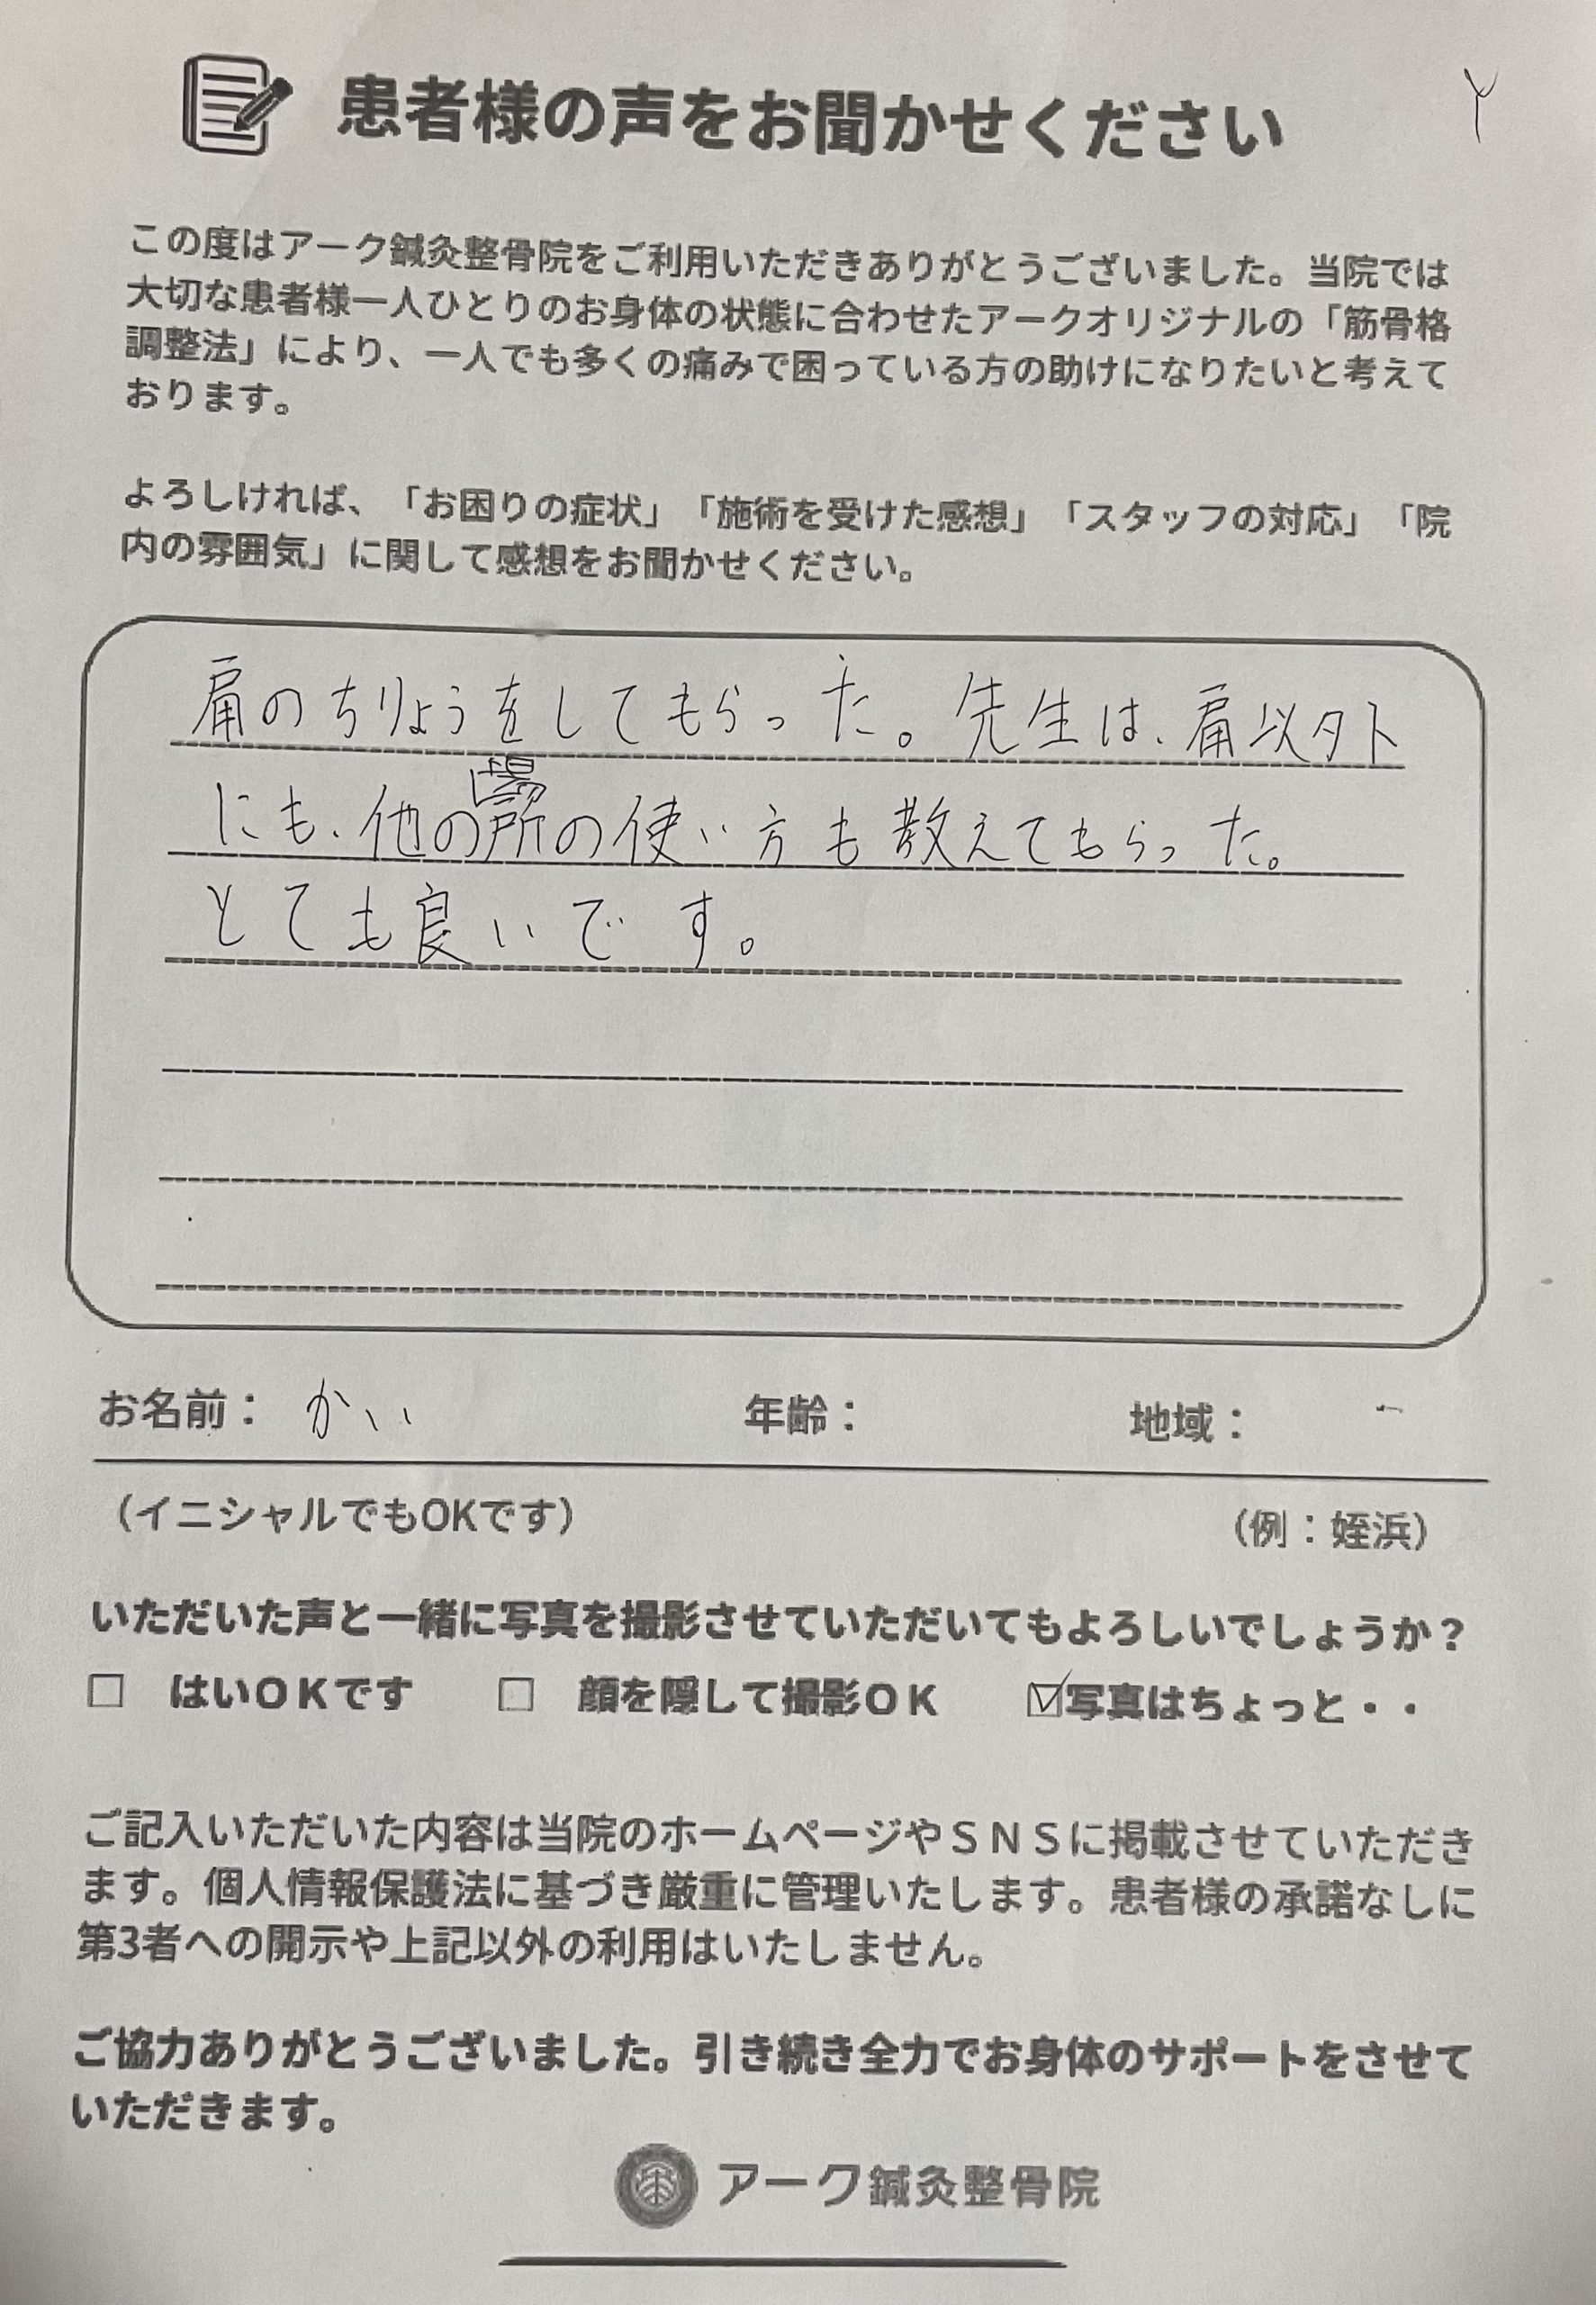 患者様の声をお聞かせください
Y
この度はアーク鍼灸整骨院をご利用いただきありがとうございました。当院では
大切な患者様一人ひとりのお身体の状態に合わせたアークオリジナルの「筋骨格
調整法」により、一人でも多くの痛みで困っている方の助けになりたいと考えて
おります。
よろしければ、「お困りの症状」「施術を受けた感想」「スタッフの対応」「院
内の雰囲気」に関して感想をお聞かせください。
肩のちりょうをしてもらった。先生は、肩以外
にも、他の場所の使い方も教えてもらった。
とても良いです。
お名前： かい 年齢： 地域：
（イニシャルでもOKです） （例：姪浜）
いただいた声と一緒に写真を撮影させていただいてもよろしいでしょうか？
□ はいＯＫです □ 顔を隠して撮影ＯＫ ☑写真はちょっと・・
ご記入いただいた内容は当院のホームページやＳＮＳに掲載させていただき
ます。個人情報保護法に基づき厳重に管理いたします。患者様の承諾なしに
第3者への開示や上記以外の利用はいたしません。
ご協力ありがとうございました。引き続き全力でお身体のサポートをさせて
いただきます。
アーク鍼灸整骨院